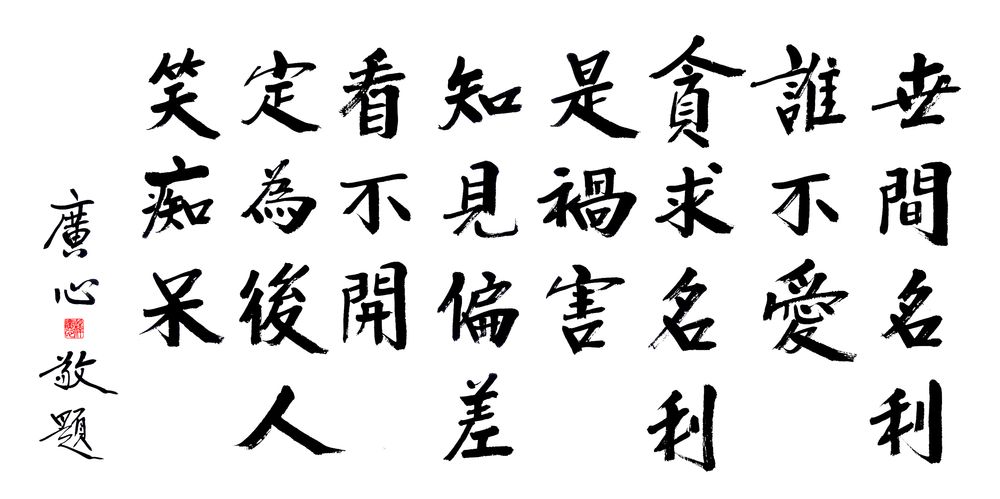 世間名利
誰不愛
貪求名利
是禍害
知見偏差
看不開
定為後人
笑痴呆
廣心敬題